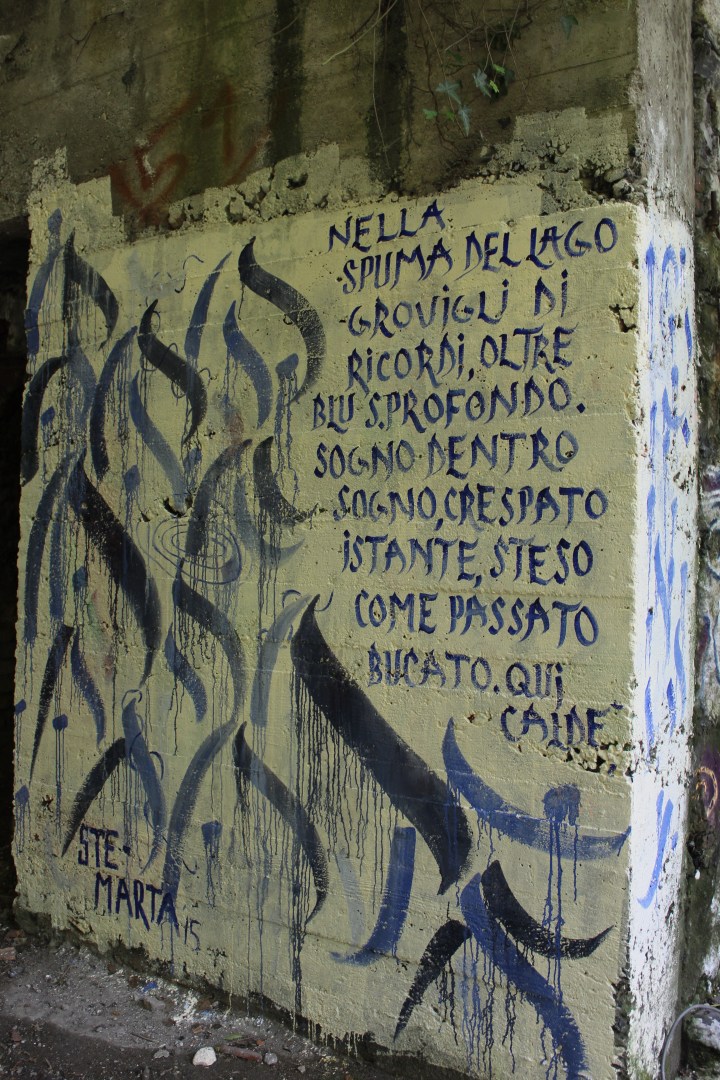 NELLA
SPUMA DEL LAGO
GROVIGLI DI
RICORDI, OLTRE
BLU S.PROFONDO.
SOGNO DENTRO
SOGNO, CRESPATO
ISTANTE, STESO
COME PASSATO
BUCATO. QUI
CALDE'
STE-
MARTA
15